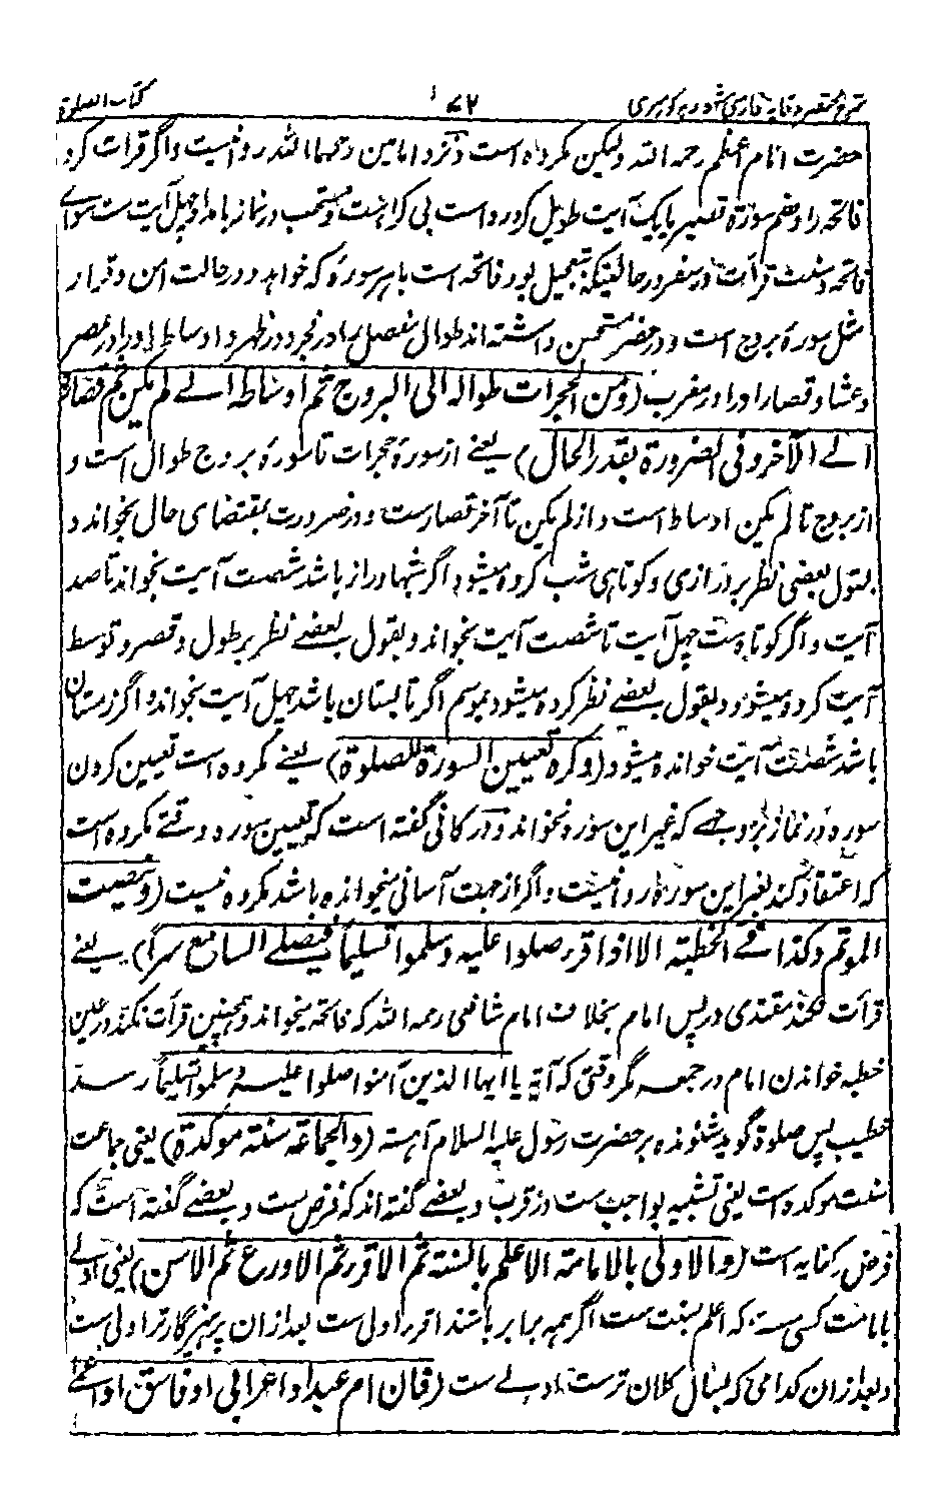 کتاب الصلوة ۷۲ شرح مختصر وقایه فارسی
حضرت امام اعظم رحمه الله ولیکن مکروه است و نزد امامین رحمهما الله روا نیست و اگر قرات کرد
فاتحه را و ضم سورة قصیر یا یک آیت طویل کرد روا است بی کراهت و مستحب در نماز بامداد چهل آیت ست سوای
فاتحه و سنت قرأت در سفر در حالتیکه تعجیل بود فاتحه است با هر سورهٔ که خواهد و در حالت امن و قرار
مثل سورهٔ بروج است و در حضر مستحسن داشته اند طوال مفصل را در فجر و در ظهر و اوساط او را در عصر
و عشا و قصار او را در مغرب (ومن الحجرات طواله الی البروج ثم اوساطه الے لم یکن ثم قصاره
الے الآخر وفی الضرورة بقدر الحال) یعنے از سورهٔ حجرات تا سورهٔ بروج طوال است و
از بروج تا لم یکن اوساط است و از لم یکن تا آخر قصارست و در ضرورت بمقتضای حال بخواند و
بقول بعضی نظر بر درازی و کوتاهی شب کرده میشود اگر شبها دراز باشد شصت آیت بخواند تا صد
آیت و اگر کوتاه ست چهل آیت تا شصت آیت بخواند و بقول بعضے نظر بر طول و قصر و توسط
آیت کرده میشود و بقول بعضے نظر کرده میشود بموسم اگر تابستان باشد چهل آیت بخواند و اگر زمستان
باشد شصت آیت خوانده میشود (وکره تعیین السورة للصلوة) یعنے مکروه است تعیین کردن
سوره در نماز بر وجهے که غیر این سوره نخواند و در کافی گفته است که تعیین سوره وقتے مکروه است
که اعتقاد کند بغیر این سورهٔ روا نیست و اگر از جهت آسانی میخوانده باشد مکروه نیست (وینصت
الموتم وکذا فے الخطبته الا اذا قرء صلوا علیه وسلموا تسلیماً فیصلے السامع سراً) یعنے
قرأت نکند مقتدی در پس امام بخلاف امام شافعی رحمه الله که فاتحه میخواند و همچنین قرأت نکند در عین
خطبه خواندن امام در جمعه مگر وقتی که آیة یا ایها الذین آمنوا صلوا علیه وسلموا تسلیماً رسد
خطیب پس صلوة گوید شنونده بر حضرت رسول علیه السلام آهسته (والجماعة سنته موکدة) یعنی جماعت
سنت موکده است یعنی تشبیه بواجب ست در قرب و بعضے گفته اند که فرض ست و بعضے گفته است که
فرض کفایه است (والاولی بالامامته الاعلم بالسنته ثم الاقرء ثم الاورع ثم الاسن) یعنی اولے
بامامت کسی ست که اعلم بسنت ست اگر همه برابر باشند اقرء اولی ست بعد ازان پرهیزگارتر اولی ست
و بعد ازان کدامی که بسال کلان ترست اولے ست (فان ام عبد او اعرابی او فاسق او اعمے